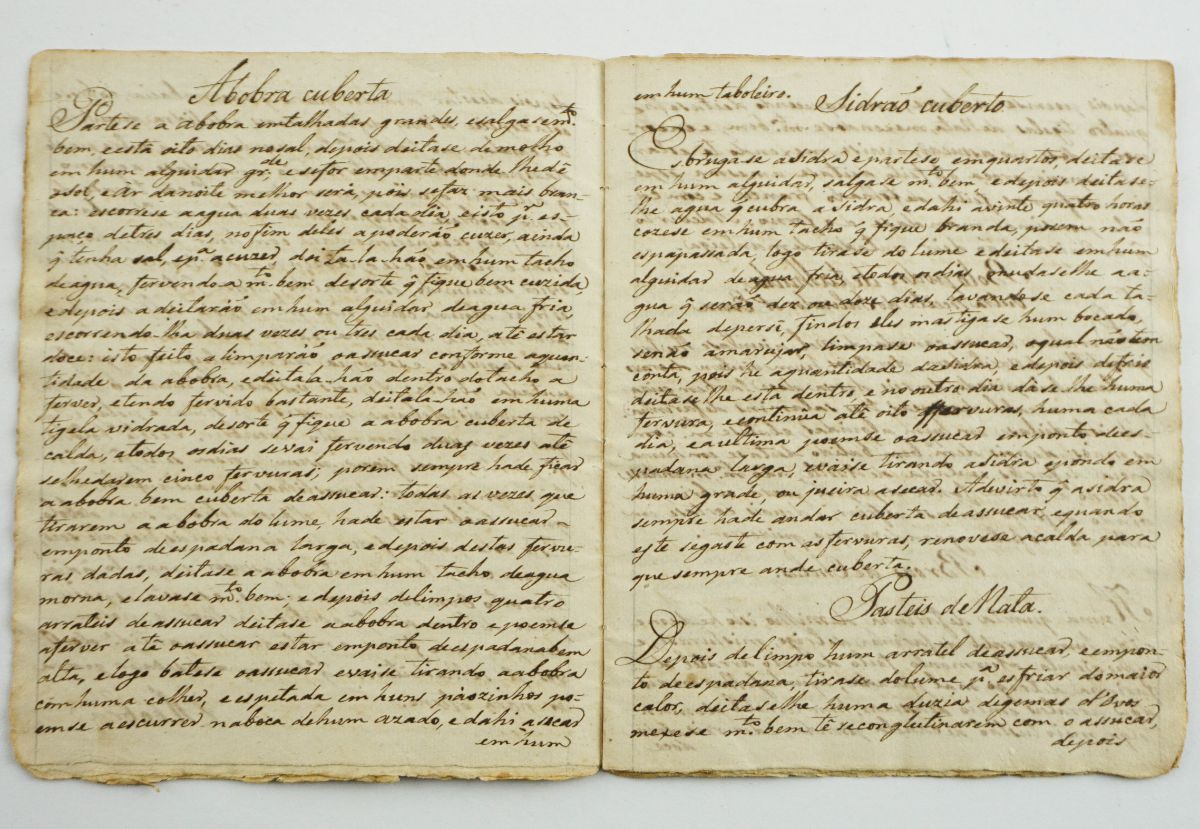 Abobra cuberta
Partese a abobra emtalhadas grandes, esalgase m.to
bem, eestá oito dias nosal, depois deitase, demolho
em hum alguidar gr.de e sefor emparte donde lhedê
osol, e Ar danoite melhor será, pois sefaz mais bran-
ca: escorrese aagua duas vezes cada dia, eisto p.a es-
paço detres dias, nofim deles apoderão cuzer, ainda
q̃ tenha sal, ep.a acuzer, deitala hão em hum tacho
deagua, fervendo a m.to bem desorte q̃ fique bem cuzida,
edepois adeitarão em hum alguidar deagua fria,
escorrendo lha duas vezes ou tres cada dia, até estar
doce: isto feito, alimparáõ oassucar conforme aquan-
tidade da abobra, edeitala hão dentro dotacho a
ferver, etendo fervido bastante, deitala hão em huma
tigela vidrada, desorte q̃ fique a abobra cuberta de
calda, etodos osdias sevai fervendo duas vezes até
selhedarem cinco fervuras; porem sempre hade ficar
aabobra bem cuberta deassucar: todas as vezes, que
tirarem aabobra dolume, hade estar oassucar
emponto deespadana larga, edepois destas fervu-
ras dadas, deitase aabobra em hum tacho deagua
morna, elavase m.to bem; e depois delimpos quatro
arrateis deassucar deitase aabobra dentro epoemse
aferver até oassucar estar emponto deespadanabem
alta, elogo batese oassucar evaise tirando aabobra
com huma colher, e espetada em huns páozinhos po-
emse aescurrer naboca dehum azado, e dahi asecar
em hum
em hum taboleiro.
Sidraõ cuberto
Esbrugase asidra epartese, emquartos deitase
em hum alguidar, salgase m.to bem, edepois deitase-
lhe agua q̃ cubra asidra edahi avinte quatro horas
cozese em hum tacho q̃ fique branda, porem não
espapassada, logo tirase dolume edeitase em hum
alguidar deagua fria, etodos osdias, mudaselhe aa-
gua q̃ serão dez ou doze dias, lavandose cada ta-
lhada depersi, findos eles mastigase hum bocado,
senão amarujar, limpase oassucar, oqual nãotem
conta, pois he aquantidade dasidra, edepois defrio
deitaselhe está dentro enooutro dia dáselhe huma
fervura, econtinua até oito fervuras, huma cada
dia, eaultima poemse oassucar emponto dees-
padana larga, evaise tirando asidra epondo em
huma grade, ou jueira asecar. Advirto q̃ asidra
sempre hade andar cuberta deassucar, equando
este segaste com asfervuras, renovese acalda para
que sempre ande cuberta.
Pasteis deNata.
Depois delimpo hum arratel deassucar, eempon-
to deespadana, tirase dolume p.a esfriar domaior
calor, deitaselhe huma duzia degemas d'Ovos
mexese m.to bem té reconglutinarem com o assucar,
depois